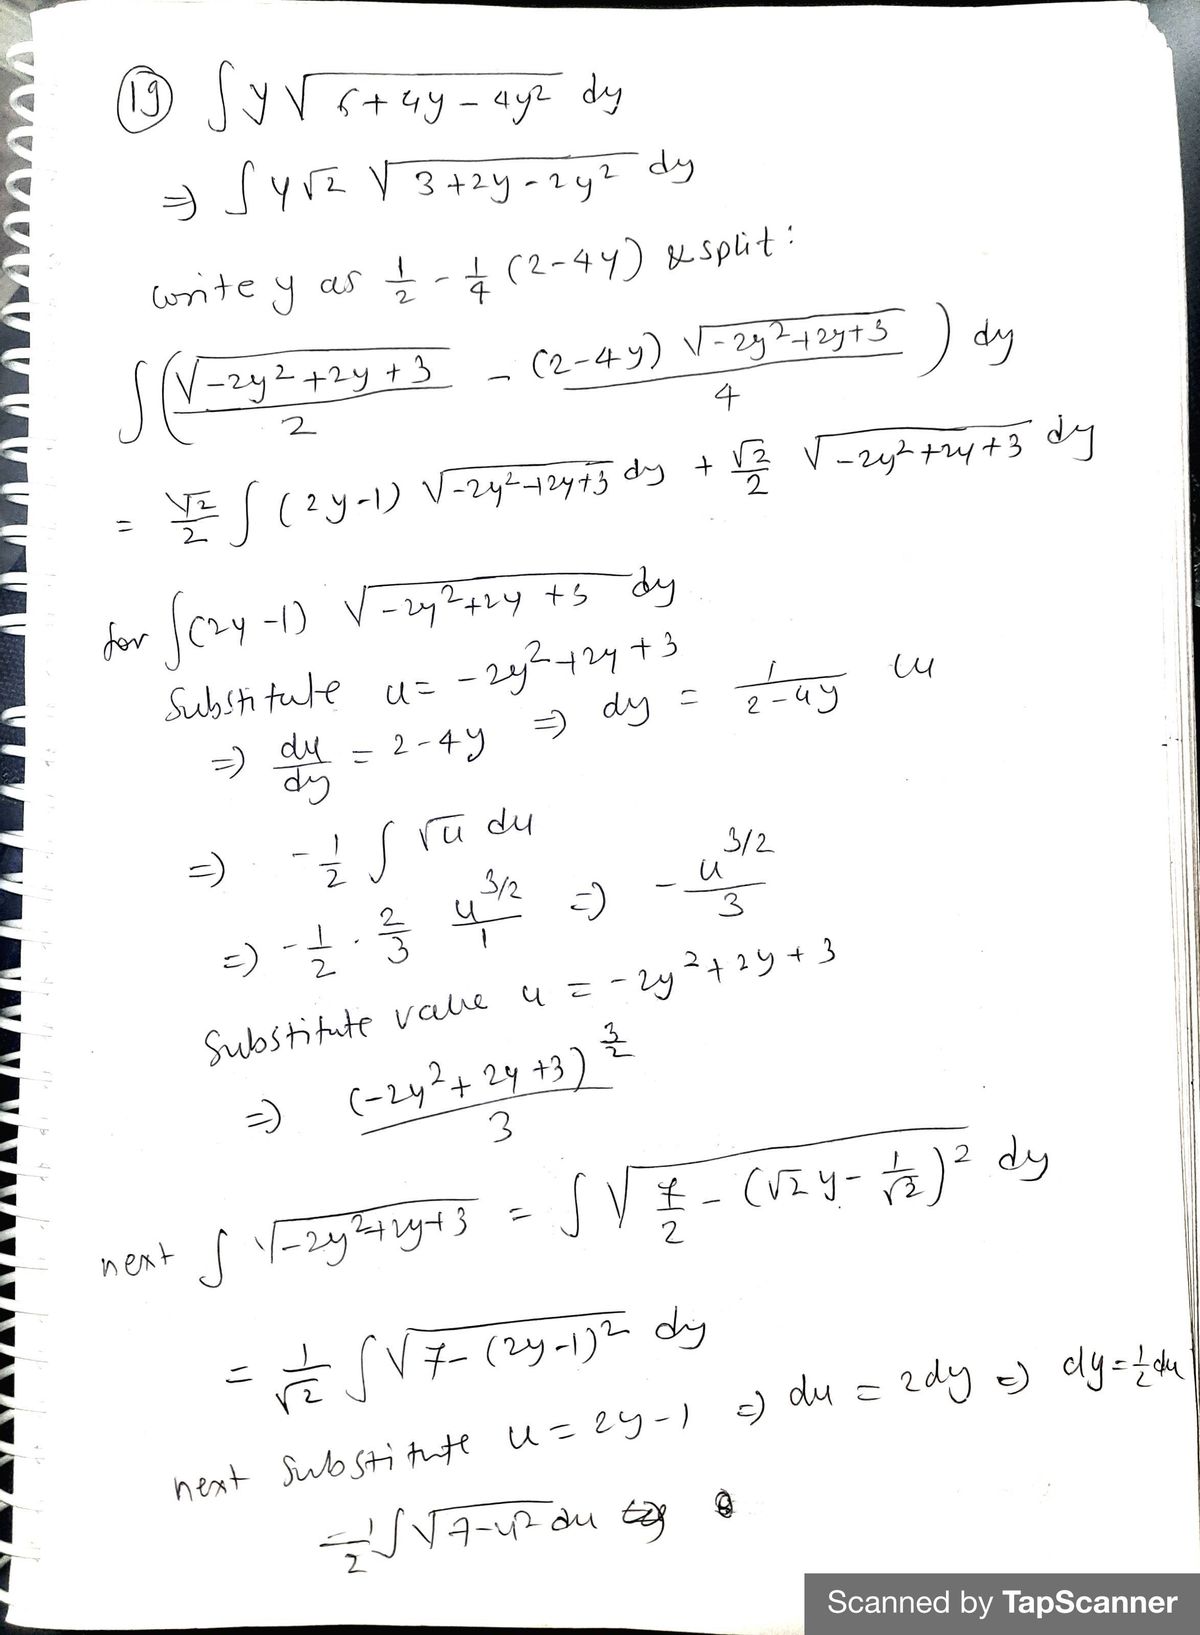 (19) ∫ y √(6+4y-4y²) dy
⇒ ∫ y√2 √(3+2y-2y²) dy
write y as 1/2 - 1/4 (2-4y) & split:
∫ ( √(-2y²+2y+3)/2 - (2-4y) √(-2y²+2y+3)/4 ) dy
= √2/2 ∫ (2y-1) √(-2y²+2y+3) dy + √2/2 √(-2y²+2y+3) dy
for ∫(2y-1) √(-2y²+2y+3) dy
Substitute u = -2y²+2y+3
⇒ du/dy = 2-4y ⇒ dy = 1/(2-4y) du
⇒ -1/2 ∫ √u du
⇒ -1/2 · 2/3 u^(3/2)/1 ⇒ -u^(3/2)/3
Substitute value u = -2y²+2y+3
⇒ (-2y²+2y+3)^(3/2)/3
next ∫ √(-2y²+2y+3) = ∫ √(7/2 - (√2y - 1/√2)²) dy
= 1/√2 ∫√(7-(2y-1)²) dy
next substitute u = 2y-1 ⇒ du = 2dy ⇒ dy = 1/2 du
= 1/2 ∫√(7-u²) du
Scanned by TapScanner